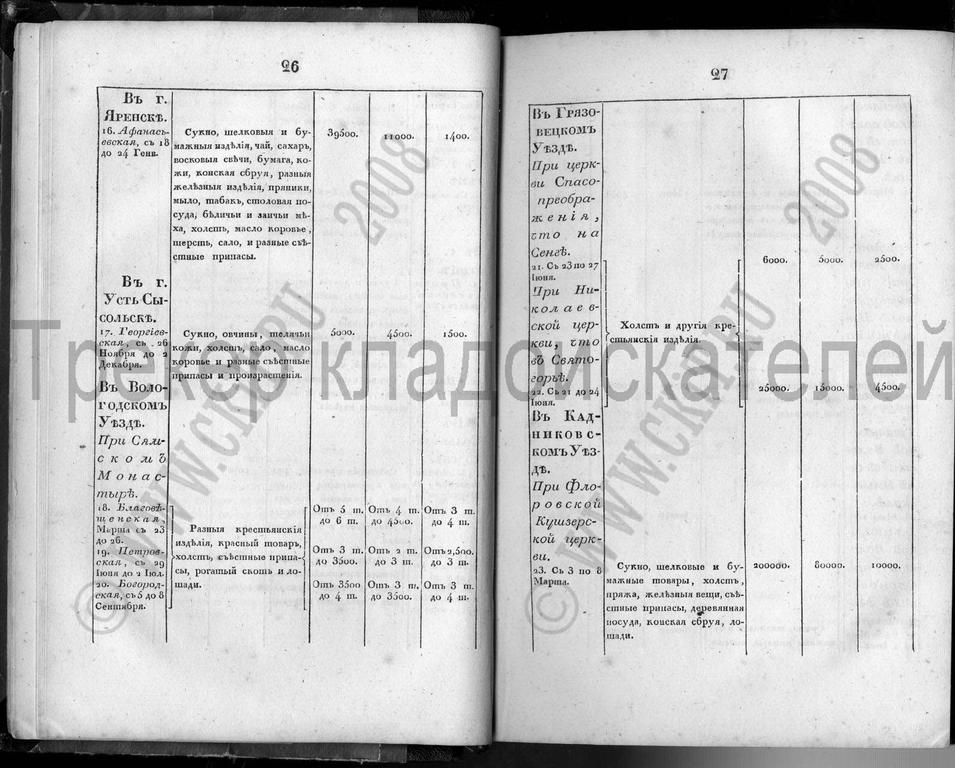 26
Въ г.
Яренскѣ.
16. Афанась-
евская, съ 18
до 24 Генв.
Сукно, шелковыя и бу-
мажныя издѣлія, чай, сахаръ,
восковыя свѣчи, бумага, ко-
жи, конская сбруя, разныя
желѣзныя издѣлія, пряники,
мыло, табакъ, столовая по-
суда, бѣличьи и заичьи мѣ-
ха, холстъ, масло коровье,
шерсть, сало, и разные съѣ-
стные припасы.
39500.
11000.
1400.
Въ г.
Усть Сы-
сольскѣ.
17. Георгіев-
ская, съ 26
Ноября до 2
Декабря.
Сукно, овчины, шелячьи
кожи, холстъ, сало, масло
коровье и разные съѣстные
припасы и произрастенія.
5000.
4500.
1500.
Въ Воло-
годскомъ
Уѣздѣ.
При Сям-
скомъ
Монас-
тырѣ.
18. Благовѣ-
щенская,
Марта съ 23
до 26.
19. Петров-
ская, съ 29
Іюня до 2 Іюл.
20. Богород-
ская, съ 5 до 8
Сентября.
Разныя крестьянскія
издѣлія, красный товаръ,
холстъ, съѣстные припа-
сы, рогатый скотъ и ло-
шади.
Отъ 5 т.
до 6 т.
Отъ 4 т.
до 4500.
Отъ 3 т.
до 4 т.
Отъ 3 т.
до 3500.
Отъ 2 т.
до 3 т.
Отъ 2,500.
до 3 т.
Отъ 3500
до 4 т.
Отъ 3 т.
до 3500.
Отъ 3 т.
до 4 т.
27
Въ Грязо-
вецкомъ
Уѣздѣ.
При церк-
ви Спасо-
преобра-
женія,
что на
Сенгѣ.
21. Съ 23 по 27
Іюня.
При Ни-
колаев-
ской цер-
кви, что
въ Свято-
горьѣ.
22. Съ 21 до 24
Іюня.
Холстъ и другія кре-
стьянскія издѣлія.
6000.
5000.
2500.
25000.
15000.
4500.
Въ Кад-
никовс-
комъ Уѣз-
дѣ.
При Фло-
ровской
Кушзерс-
кой церк-
ви.
23. Съ 3 по 8
Марта.
Сукно, шелковые и бу-
мажные товары, холстъ,
пряжа, желѣзныя вещи, съѣ-
стные припасы, деревянная
посуда, конская сбруя, ло-
шади.
200000.
80000.
10000.
Трекер кладоискателей
© WWW.CKAP.RU 2008
© WWW.CKAP.RU 2008